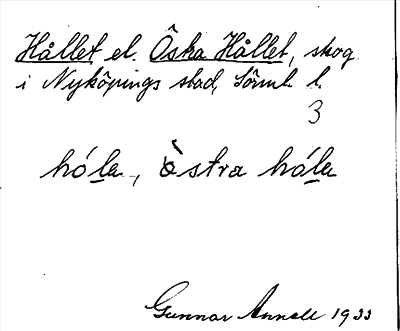 Hållet el. Östra Hållet, skog
i Nyköpings stad, Sörml. l.
3
hóla, òstra hóla
Gunnar Annell 1933